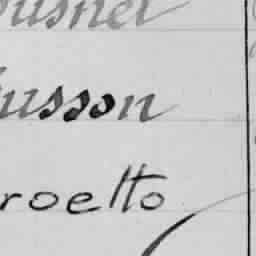 ousnel
usson
roetto